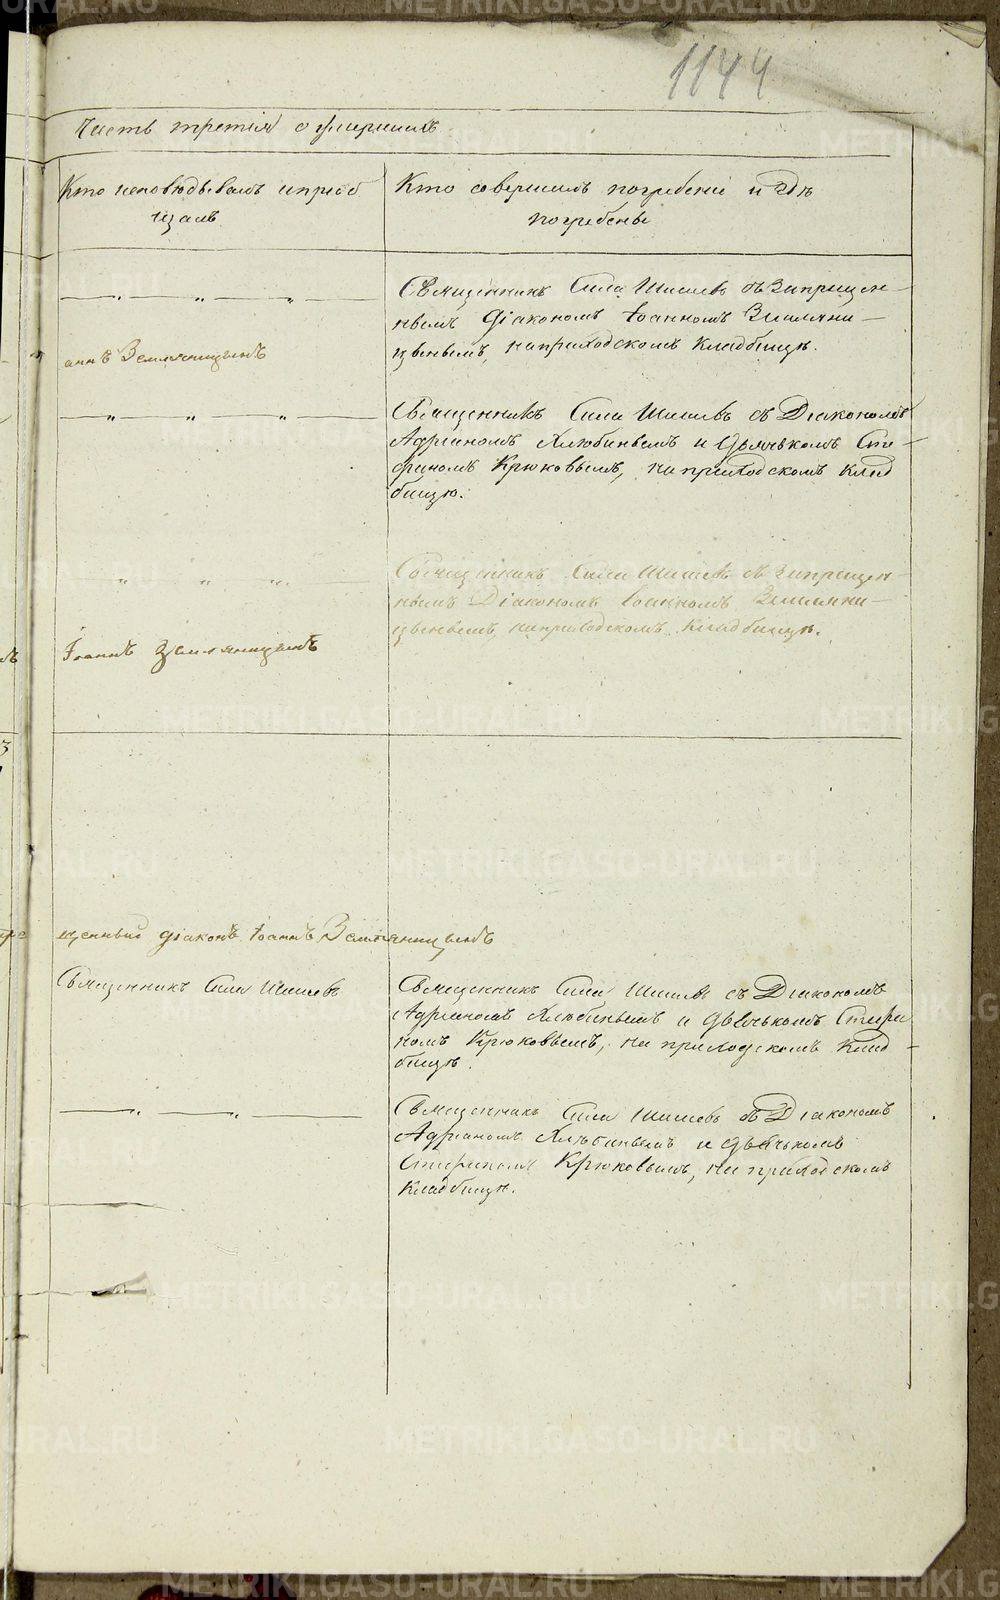 1144
Часть третія о умершихъ
Кто исповѣдывалъ и пріоб
щалъ
Кто совершалъ погребеніе и гдѣ
погребены
Священникъ Сила Шишевъ съ Запрещен-
нымъ Діакономъ Іоанномъ Землянич-
цынымъ, на приходскомъ Кладбищѣ.
аннъ Земляницынъ
Священникъ Сила Шишевъ съ Діакономъ
Адріаномъ Хлюбинымъ и Дьячькомъ Сте-
фаномъ Крюковымъ, на приходскомъ Клад
бищѣ.
Священникъ Сила Шишевъ съ Запрещен-
нымъ Діакономъ Іоанномъ Земляни-
цынымъ, на приходскомъ Кладбищѣ.
Іоаннъ Земляницынъ
щенный діаконъ Іоаннъ Земляницынъ
Священникъ Сила Шишевъ
Священникъ Сила Шишевъ съ Діакономъ
Адріаномъ Хлюбинымъ и дьячькомъ Стефа
номъ Крюковымъ, на приходскомъ Клад-
бищѣ.
Священникъ Сила Шишевъ съ Діакономъ
Адріаномъ Хлюбинымъ и дьячькомъ
Стефаномъ Крюковымъ, на приходскомъ
Кладбищѣ.
METRIKI.GASO-URAL.RU